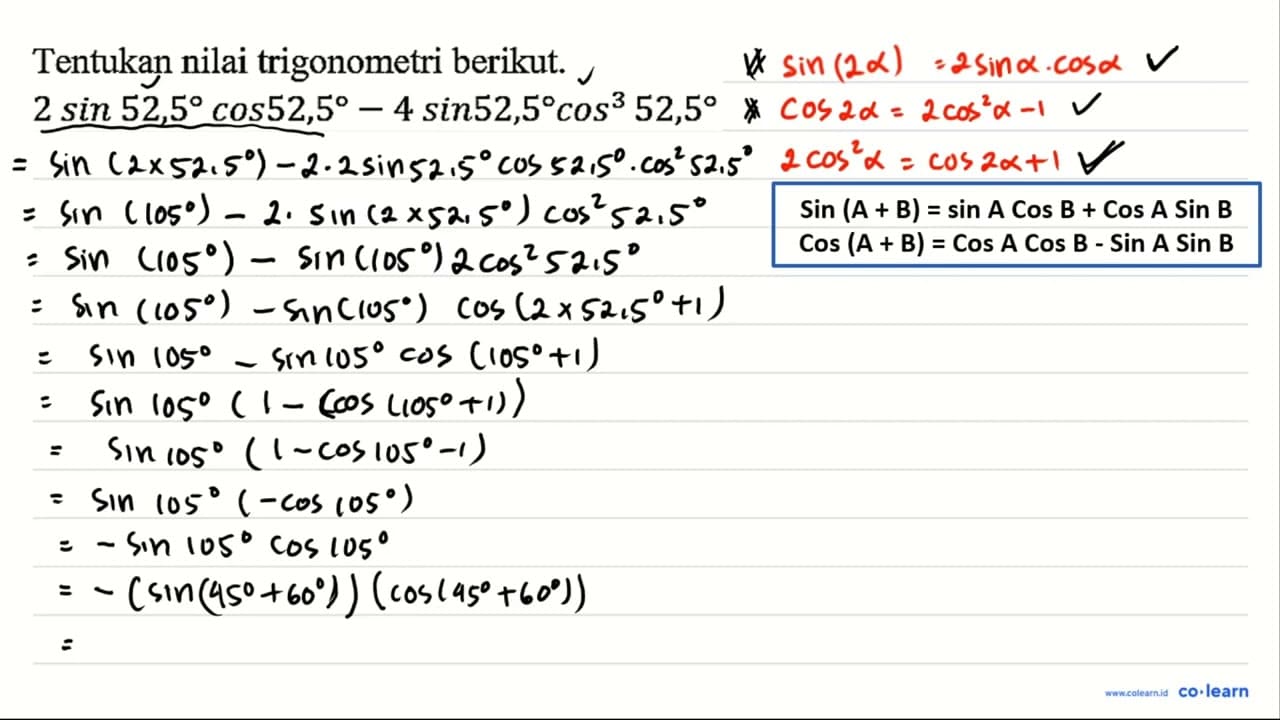 Tentukan nilai trigonometri berikut.
2 sin 52,5° cos52,5° − 4 sin52,5°cos³ 52,5°
= sin (2×52,5°) − 2.2 sin 52,5° cos 52,5°. cos² 52,5°
= sin (105°) − 2. sin (2×52,5°) cos² 52,5°
= sin (105°) − sin (105°) 2 cos² 52,5°
= sin (105°) − sin (105°) cos (2×52,5° + 1)
= sin 105° − sin 105° cos (105° + 1)
= sin 105° (1 − (cos (105° + 1))
= sin 105° (1 − cos 105° − 1)
= sin 105° (−cos 105°)
= − sin 105° cos 105°
= − (sin (45° + 60°)) (cos (45° + 60°))
=
* sin (2α) = 2 sin α . cos α ✓
* cos 2α = 2 cos² α − 1 ✓
2 cos² α = cos 2α + 1 ✓
Sin (A + B) = sin A Cos B + Cos A Sin B
Cos (A + B) = Cos A Cos B - Sin A Sin B
www.colearn.id co·learn